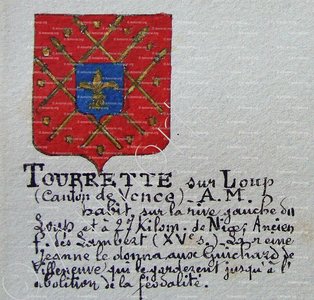 TOURRETTE sur LOUP
(Canton de Vence). A. M.
bâtit sur la rive gauche du
Loup et à 29 Kilom. de Nice. Ancien
f. des Lambert (XVe s.). La reine
Jeanne le donna aux Guichard de
Villeneuve qui le garderent jusqu'à l'
abolition de la féodalité.